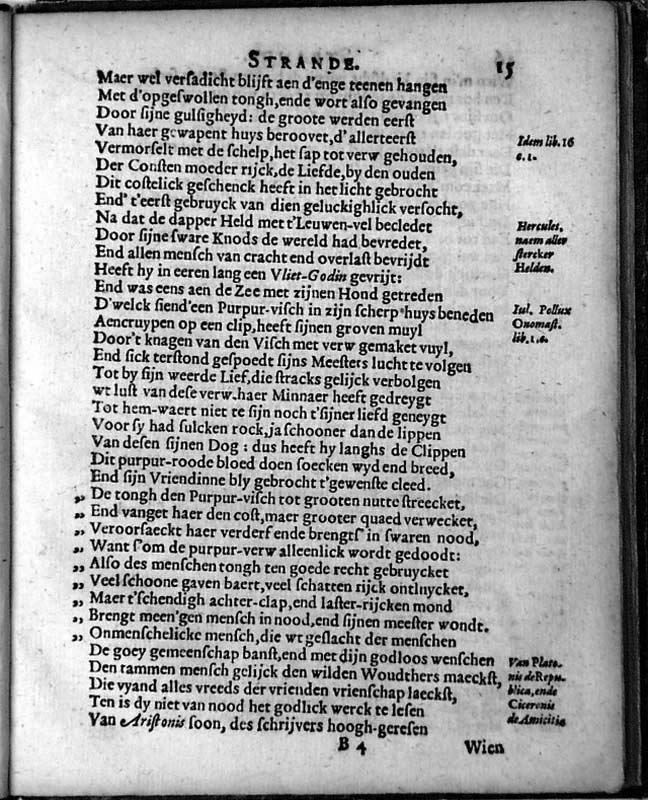 STRANDE. 15
Maer wel versadicht blijft aen d'enge teenen hangen
Met d'opgeswollen tongh, ende wort also gevangen
Door sijne gulsigheyd: de groote werden eerst
Van haer gewapent huys beroovet, d'allerteerst
Idem lib. 16
Vermorselt met de schelp, het sap tot verw gehouden,
c. 1.
Der Consten moeder rijck, de Liefde, by den ouden
Dit costelick geschenck heeft in het licht gebrocht
End' t'eerst gebruyck van dien geluckighlick versocht,
Na dat de dapper Held met t'Leuwen-vel becledet
Hercules,
Door sijne sware Knods de wereld had bevredet,
naem aller
End allen mensch van cracht end overlast bevrijdt
stercker
Heeft hy in eeren lang een Vliet-Godin gevrijt:
Helden.
End was eens aen de Zee met zijnen Hond getreden
D'welck siend' een Purpur-visch in zijn scherp huys beneden
Iul. Pollux
Aencruypen op een clip, heeft sijnen groven muyl
Onomast.
Door't knagen van den Visch met verw gemaket vuyl,
lib. 1. c.
End sick terstond gespoedt sijns Meesters lucht te volgen
Tot by sijn weerde Lief, die stracks gelijck verbolgen
wt lust van dese verw, haer Minnaer heeft gedreygt
Tot hem-waert niet te sijn noch t'sijner liefd geneygt
Voor sy had sulcken rock, ja schooner dan de lippen
Van desen sijnen Dog: dus heeft hy langhs de Clippen
Dit purpur-roode bloed doen soecken wyd end breed,
End sijn Vriendinne bly gebrocht t'gewenste cleed.
„ De tongh den Purpur-visch tot grooten nutte streecket,
„ End vanget haer den cost, maer grooter quaed verwecket,
„ Veroorsaeckt haer verderf ende brengts' in swaren nood,
„ Want s'om de purpur-verw alleenlick wordt gedoodt:
„ Also des menschen tongh ten goede recht gebruycket
„ Veel schoone gaven baert, veel schatten rijck ontluycket,
„ Maer t'schendigh achter-clap, end laster-rijcken mond
„ Brengt meen'gen mensch in nood, end sijnen meester wondt.
„ Onmenschelicke mensch, die wt geslacht der menschen
De goey gemeenschap banst, end met dijn godloos wenschen
Van Plato-
Den tammen mensch gelijck den wilden Woudthers maeckst,
nis de Repu-
Die vyand alles vreeds der vrienden vrienschap laeckst,
blica, ende
Ten is dy niet van nood het godlick werck te lesen
Ciceronis
Van Aristonis soon, des schrijvers hoogh-geresen
de Amicitia
B 4 Wien